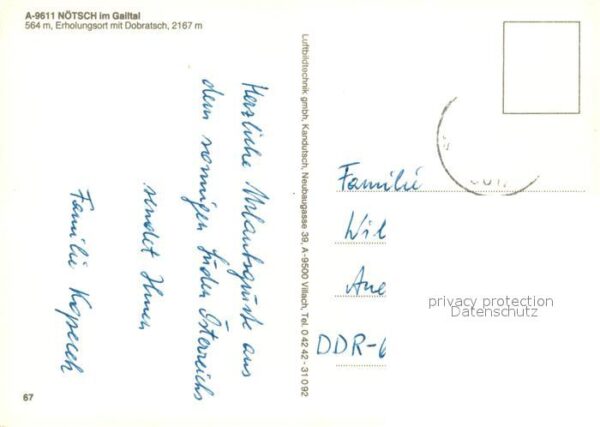 A-9611 NÖTSCH im Gailtal
564 m, Erholungsort mit Dobratsch, 2167 m
Herzliche Urlaubsgrüße aus
dem sonnigen Süden Österreichs
sendet Ihnen
Familie Kopecek
Luftbildtechnik gmbh, Kandutsch, Neubaugasse 39, A-9500 Villach, Tel. 0 42 42 - 31 0 92
Familie
Wil
Aue
DDR-6
privacy protection
Datenschutz
67